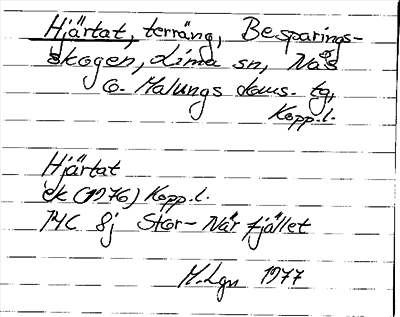 Hjärtat, terräng, Besparings-
skogen, Lima sn, Nås
o. Malungs doms. tg,
Kopp.l.
Hjärtat
ek (1976) Kopp.l.
14C 8j Stor-Närfjället
M.Lgn 1977